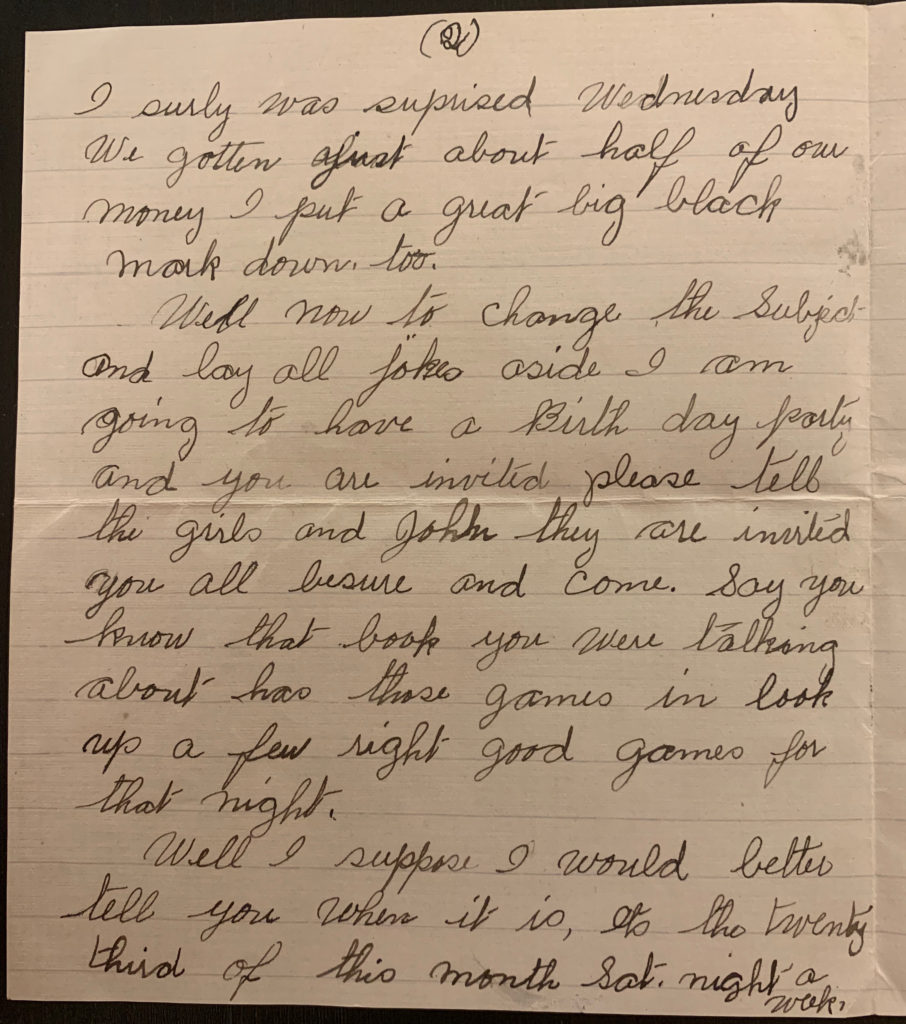 (2)
I surly was suprised Wednesday
We gotten just about half of our
money I put a great big black
mark down. too.
Well now to change the Subject
and lay all jokes aside I am
going to have a Birth day party
and you are invited please tell
the girls and John they are invited
you all besure and come. Say you
know that book you were talking
about has those games in look
up a few right good games for
that night.
Well I suppose I would better
tell you when it is, Its the twenty
third of this month Sat. night a
week.